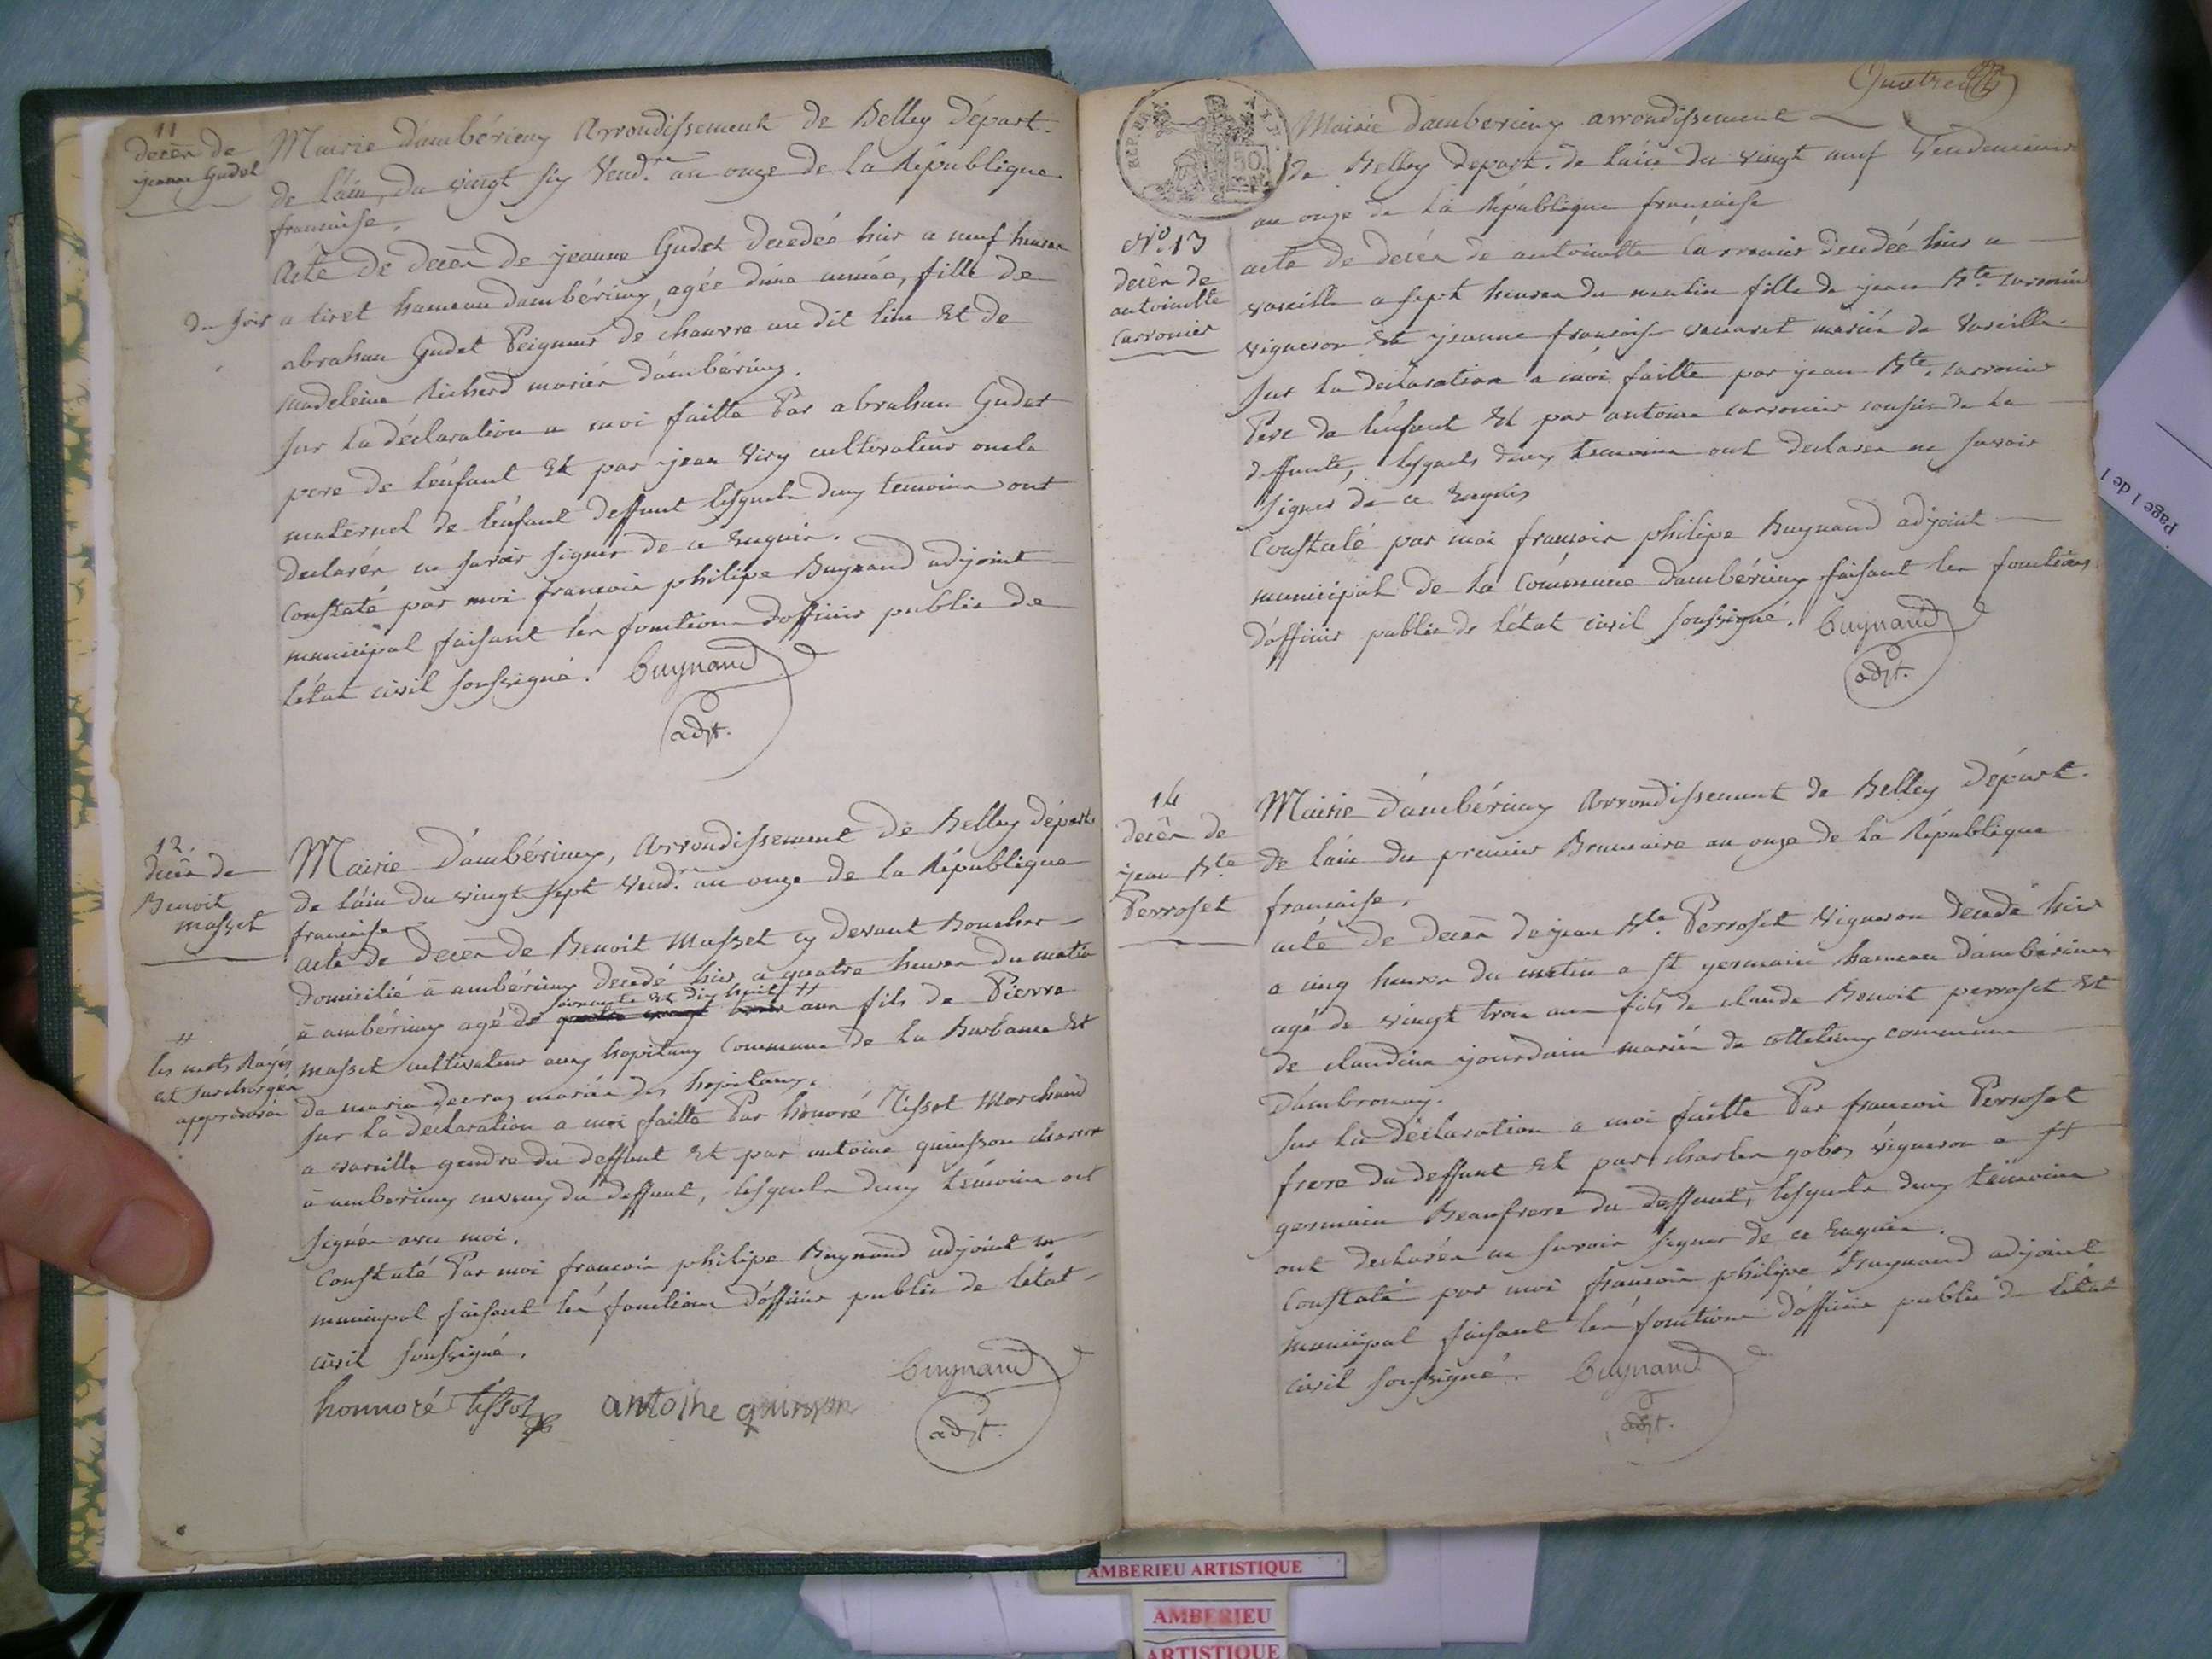 11
decès de
jeanne Gudet
Mairie d'ambérieux Arrondissement de Belley Départ.
de l'ain, du vingt six Vend.re an onze de la République
francaise.
Acte de decès de jeanne Gudet decedée hier a neuf heures
du soir a tiret hameau dambérieux, agée d'une année, fille de
abraham Gudet Peigneur de chanvre au dit lieu Et de
madeleine Richerd mariés d'ambérieux.
Sur la déclaration a moi faitte Par abraham Gudet
pere de l'enfant Et par jean Viry cultivateur oncle
maternel de l'enfant deffunt lesquels deux temoins ont
declarés ne savoir signer de ce Enquis.
Constaté par moi francois philipe Buynand adjoint
municipal faisant les fonctions d'officier public de
l'état civil soussigné. Buynand
adjt.
12.
decès de
Benoit
masset
Mairie d'ambérieux, Arrondissement de Belley départ.
de l'ain du vingt sept Vend.re an onze de la République
francaise
acte de decès de Benoit Masset cy devant Boucher
domicilié à ambérieux decedé hier a quatre heures du matin
soixante et dix huit #
à ambérieux agé de quatre vingt ans fils de Pierre
masset cultivateur aux hopitaux Commune de la Burbanne Et
de maria mariés des hopitaux.
#
les mots Rayés
et surchargés
approuvés
Sur la declaration a moi faitte Par honoré Tissot Marchand
a vareille gendre du deffunt Et par antoine quinson
à amberieux neveux du deffunt, lesquels deux témoins ont
signés avec moi.
Constaté Par moi francois philipe Buynand adjoint
municipal faisant les fonctions d'officier public de l'etat
civil soussigné.
honnoré tissot antoine quinson Buynand
adjt.
Quatre
Mairie dambérieux arrondissement
REP. FRA.
50
de Belley depart. de l'ain du vingt neuf Vendemiaire
an onze de la République francaise
No. 13
decès de
antoinette
Carronier
acte de decès de antoinette Carronier decedée hier a
vareille a sept heures du matin fille de jean Bte. Carronier
vigneron Et jeanne francoise mariés de Vareille.
Sur la declaration a moi faitte par jean Bte. carronier
Pere de l'enfant Et par antoine carronier cousin de la
deffunte, lesquels deux temoins ont declarés ne savoir
signer de ce Enquis
Constaté par moi francois philipe Buynand adjoint
municipal de la Commune dambérieux faisant les fonctions
d'officier public de l'état civil soussigné. Buynand
adjt.
14
decès de
jean Bte
Perroset
Mairie d'ambérieux Arrondissement de Belley Départ.
de l'ain du premier Brumaire an onze de la République
francaise.
acte de decès de jean Bte. Perroset Vigneron decedé hier
a cinq heures du matin a St germain hameau d'ambérieux
agé de vingt trois ans fils de claude Benoit perroset Et
de claudine jourdain mariés de commune
d'ambronay.
Sur la déclaration a moi faitte Par francois Perroset
frere du deffunt Et par charles vigneron a St
germain Beaufrere du deffunt, lesquels deux témoins
ont declarés ne savoir signer de ce Enquis.
Constaté par moi francois philipe Buynand adjoint
municipal faisant les fonctions d'officier public de l'état
civil soussigné. Buynand
adjt.
Page 1 de 1
AMBERIEU ARTISTIQUE
AMBERIEU
ARTISTIQUE